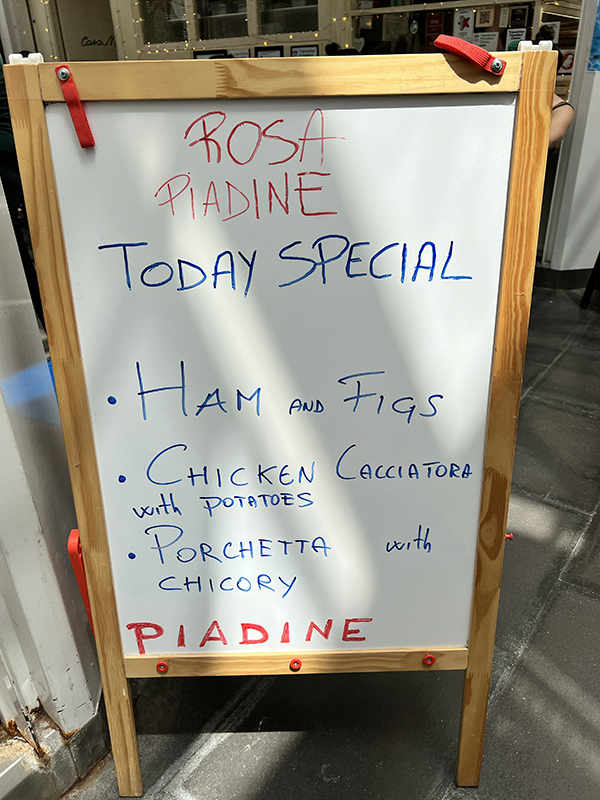 ROSA
PIADINE
TODAY SPECIAL
• HAM AND FIGS
• CHICKEN CACCIATORA
with POTATOES
• PORCHETTA with
CHICORY
PIADINE